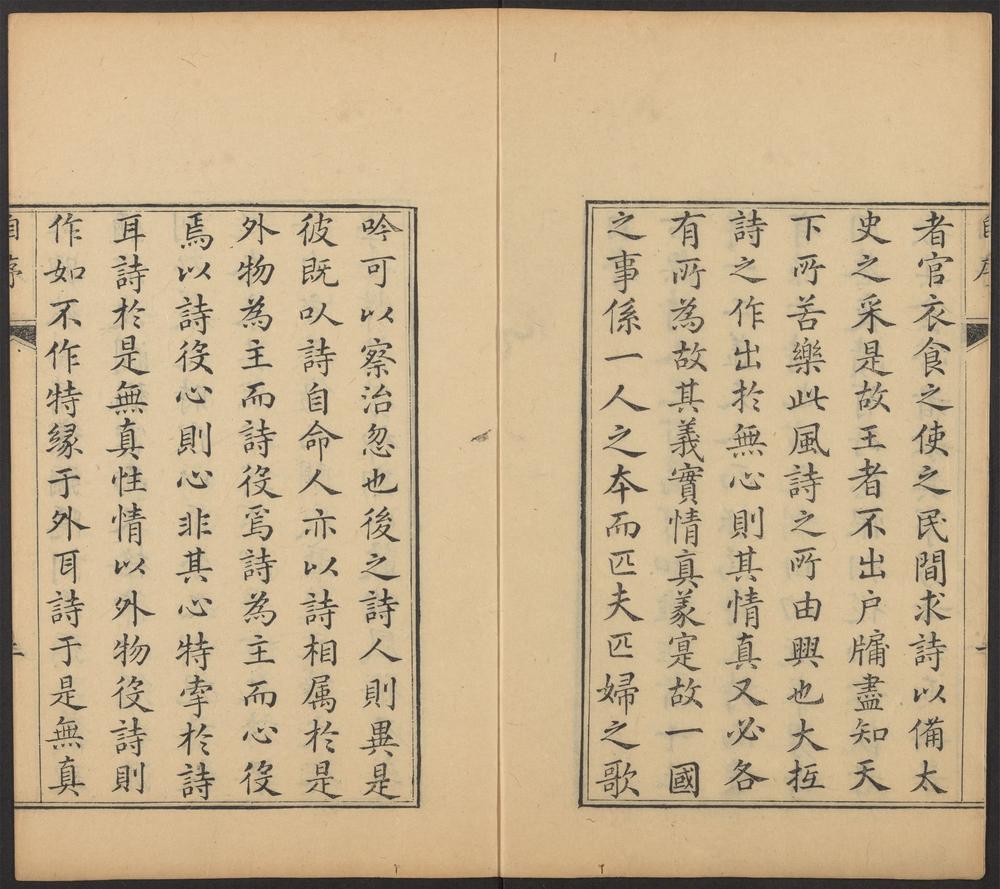 者官衣食之使之民間求詩以備太
史之采是故王者不出户牖盡知天
下所苦樂此風詩之所由興也大抵
詩之作出於無心則其情真又必各
有所為故其義實情真義寔故一國
之事係一人之本而匹夫匹婦之歌
吟可以察治忽也後之詩人則異是
彼既以詩自命人亦以詩相属於是
外物為主而詩役焉詩為主而心役
焉以詩役心則心非其心特牽於詩
耳詩於是無真性情以外物役詩則
作如不作特緣于外耳詩于是無真
自序
二